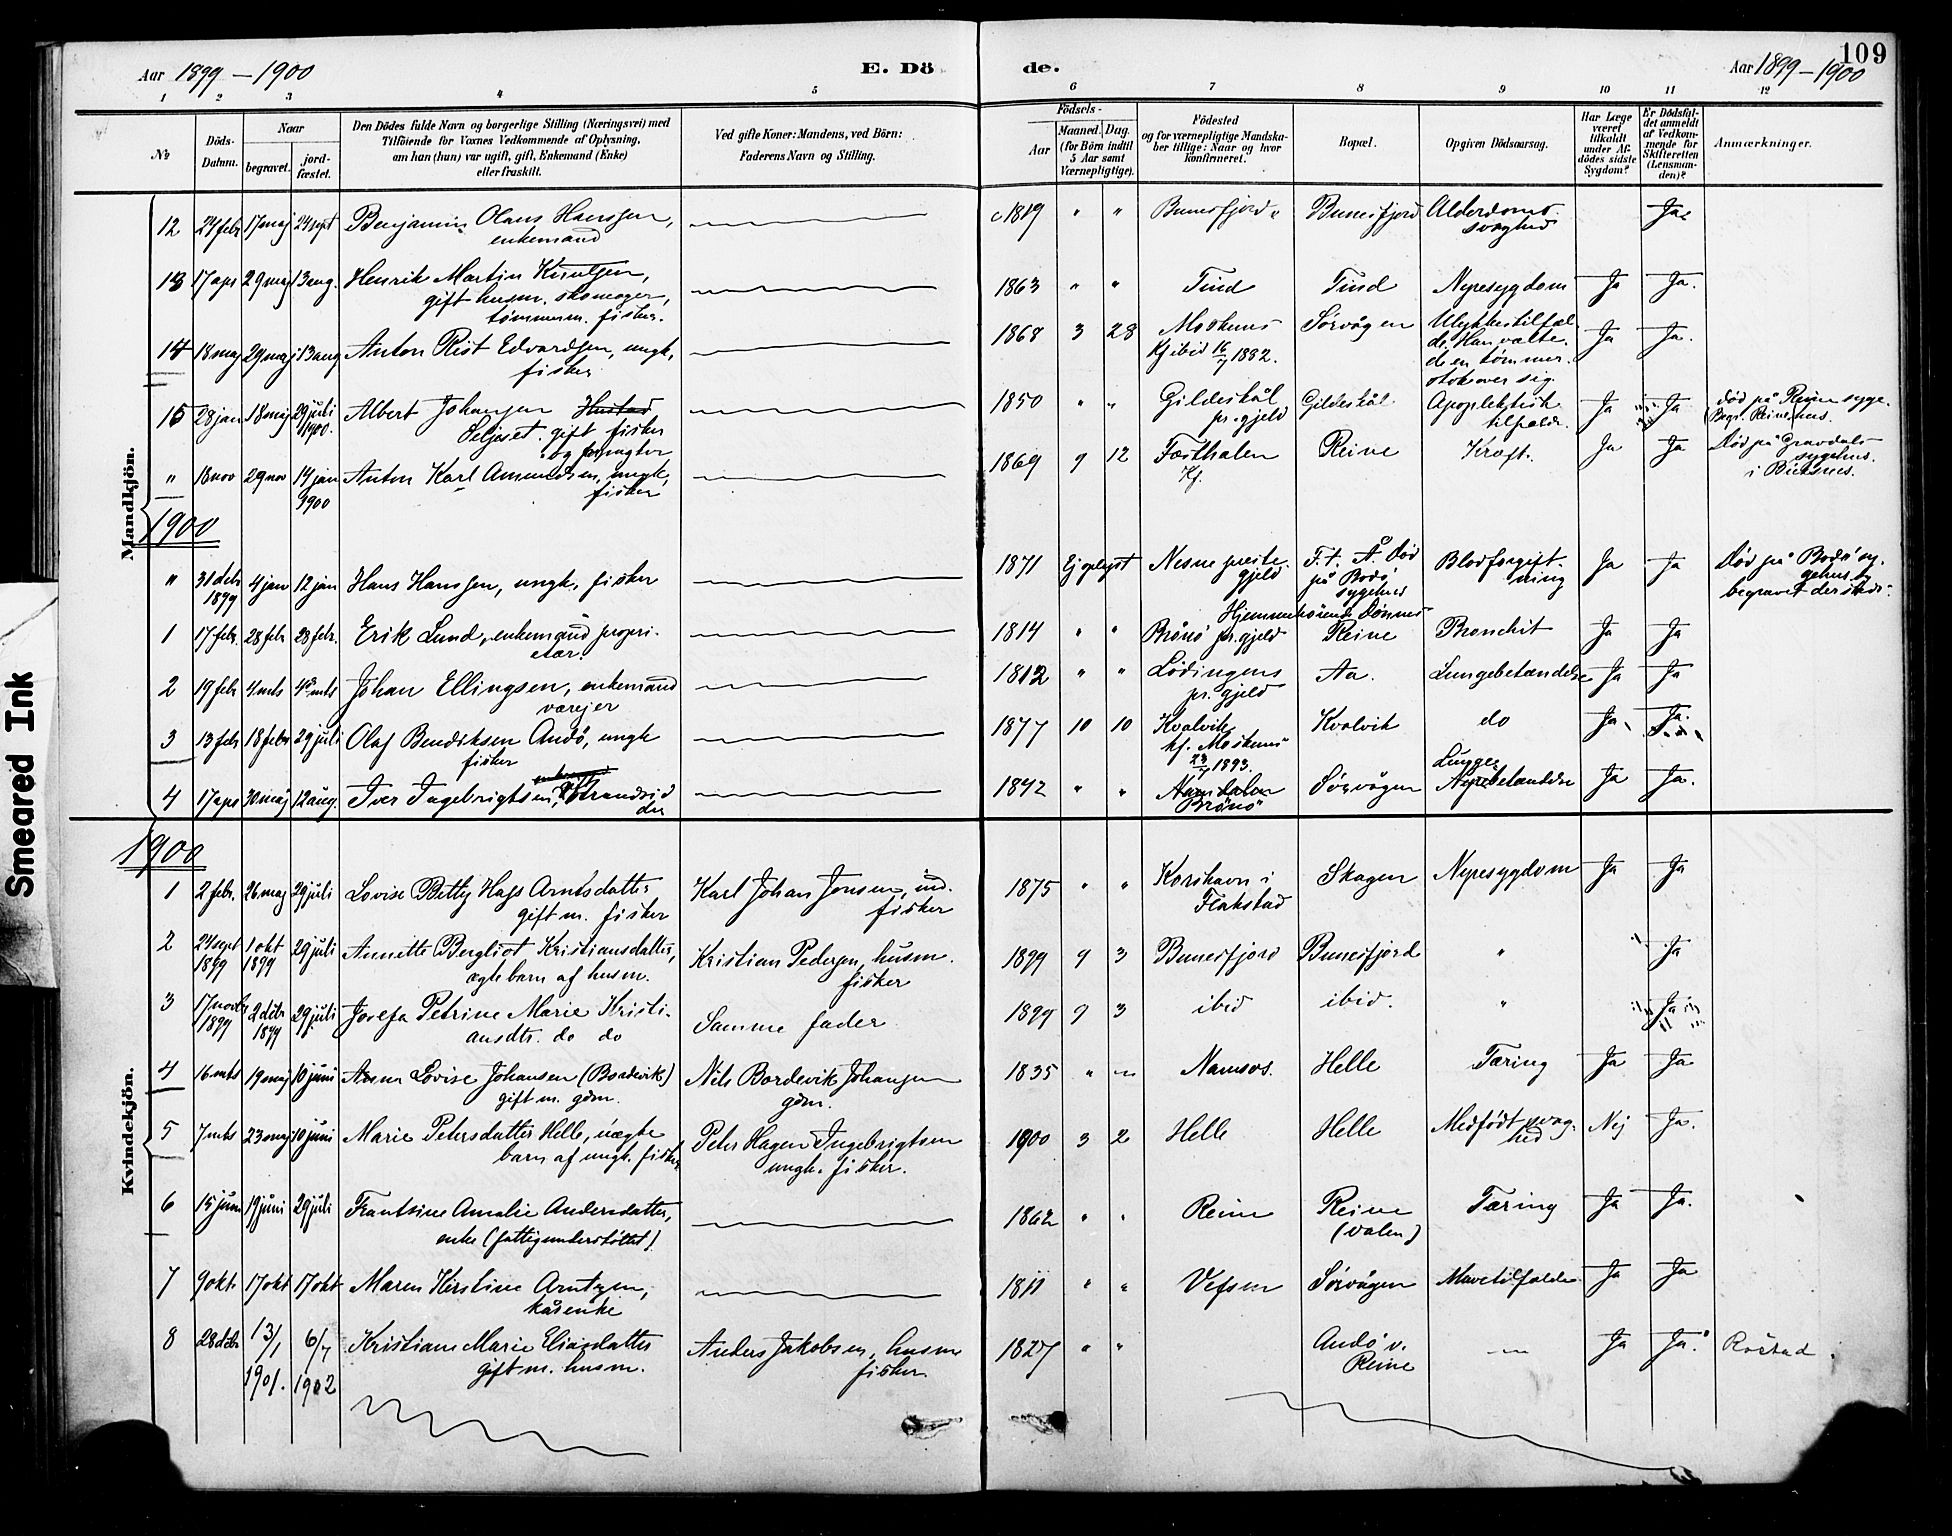 109
Aar 1899 - 1900
E. Dö
de.
Aar 1899 - 1900
1 2 3 4 5 6 7 8 9 10 11 12
No
Döds-Datum.
Naar
begravet.
jord-fæstet.
Den Dödes fulde Navn og borgerlige Stilling (Næringsvei) med
Tilföiende for Voxnes Vedkommende af Oplysning,
om han (hun) var ugift, gift, Enkemand (Enke)
eller fraskilt.
Ved gifte Koner: Mandens, ved Börn:
Faderens Navn og Stilling.
Födsels-
Aar
Maaned. Dag.
(for Börn indtil
5 Aar samt
Værnepligtige).
Födested
og for værnepligtige Mandska-
ber tillige: Naar og hvor
konfirmeret.
Bopæl.
Opgiven Dödsaarsag.
Har Læge
været
tilkaldt
under Af-
dödes sidste
Sygdom?
Er Dödsfal-
det anmeldt
af Vedkom-
mende for
Skifteretten
(Lensman-
den)?
Anmærkninger.
Mandkjön.
12 24 febr 17 maj 24 sept Benjamin Olaus Hanssen,
enkemand
c 1819 " " Bunesfjord Bunesfjord Alderdoms-
svaghed Ja
13 17 apr 29 maj 13 aug. Henrik Martin Knutsen,
gift husm. skomager,
tömmerm. fisker.
1863 " " Tind Tind Nyresygdom Ja Ja.
14 18 maj 29 maj 13 aug Anton Rist Edvardsen, ungk.
fisker
1868 3 28 Moskenes
Kf ibid 16/7 1882. Sørvågen Ulykkestilfæl-
de. Han vælte-
de en tömmer-
stok over sig. Ja Ja.
15 28 jan 18 maj 29 juli
1900. Albert Johansen Hustad
Seljeset. gift fisker
og
1850 " " Gildeskål
pr.gjeld Gildeskål Apoplektisk
tilfælde. Ja Ja död på Reine syge-
hus.
" 18 nov 29 nov 14 jan
1900 Anton Karl Amundsen, ungk.
fisker
1869 9 12
Kf. Reine Kræft. Ja Ja Död på Gravdals
sygehus.
i
1900
" 31 debr
1899 4 jan 12 jan Hans Hanssen, ungk. fisker
1871 Ej oplyst Nesne preste-
gjeld F. t. Å. död
på Bodö
sygehus
Hjemmehörende Dönnes Blodforgift-
ning Ja Ja Död på Bodö sy-
gehus og
begravet dersteds.
1 17 febr. 28 febr 28 febr. Erik Lund, enkemand propri-
etær.
1814 " " Brönö pr.gjeld Reine Bronchit Ja Ja
2 19 febr 4 mts 4 mts Johan Ellingsen, enkemand
værejer
1812 " " Lödingens
pr. gjeld Aa. Lungebetændelse Ja Ja
3 13 febr 18 febr 29 juli Olaf Bendiksen Andö, ungk
fisker
1877 10 10 Kvalvik
kf. Moskenes
23/7 1893. Kvalvik do Ja Ja.
4 17 apr 30 maj 12 aug. Iver Ingebrigtsen, gift Strandsid
der
1842 " " Namdalen
Brönö Sörvågen Lunge
Nyrebetændelse Ja Ja.
Kvindekjön.
1900
1 2 febr. 26 maj 29 juli Lovise Betty Hags Arntsdatter
gift m. fisker Karl Johan Jensen, ind.
fisker
1875 " " Korshavn i
Flakstad Skagen Nyresygdom Ja Ja
2 24 sept
1899 1 okt
1899 29 juli Annette Bergliot Kristiansdatter,
ægte barn af husm. Kristian Pedersen, husm.
fisker
1899 9 3 Bunesfjord Bunesfjord " Ja
3 17 novbr
1899 2 debr
1899 29 juli Josefa Petrine Marie Kristi-
ansdtr. do do Samme fader
1899 9 3 ibid ibid. " Ja
4 16 mts 19 maj 10 juni Anne Lovise Johansen (Bordevik)
gift m. gdm. Nils Bordevik Johansen
gdm.
1835 " " Namsos. Helle Tæring Ja Ja
5 7 mts 23 maj 10 juni Marie Petersdatter Helle, uægte
barn af ungk. fisker Peter Hagen Ingebrigtsen
ungk. fisker.
1900 3 2 Helle Helle Medfödt svag-
hed Nej Ja.
6 15 juni 19 juni 29 juli Frantsine Amalie Andersdatter,
enke (fattigunderstöttet).
1862 " " Reine Reine
(Valen) Tæring Ja Ja.
7 9 okt. 17 okt 17 okt Maren Kirstine Arntzen,
kårenke
1811 " " Vefsen Sörvågen Mavetilfælde Ja Ja
8 28 debr 13/1
1901. 6/7
1902 Kristiane Marie Eliasdatter
gift m. husm. Anders Jakobsen, husm
fisker
1827 " " Andö v.
Reine Ja Ja. Röstad.
Smeared Ink